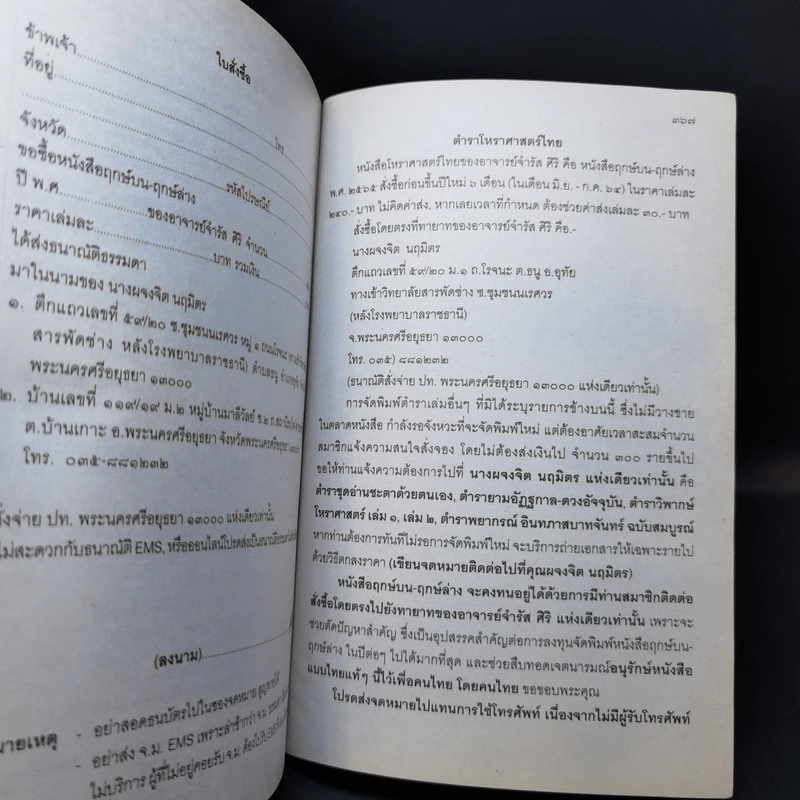 ใบสั่งซื้อ
ข้าพเจ้า
โทร
ที่อยู่
จังหวัด
รหัสไปรษณีย์
ขอซื้อหนังสือฤกษ์บน-ฤกษ์ล่าง
ปี พ.ศ. ของอาจารย์จำรัส ศิริ จำนวน
ราคาเล่มละ บาท รวมเงิน
ได้ส่งธนาณัติธรรมดา
มาในนามของ นางผจงจิต นฤมิตร
๑. ตึกแถวเลขที่ ๕๙/๒๐ ซ.ชุมชนนเรศวร หมู่ ๑ ถนนโรจนะ
สารพัดช่าง หลังโรงพยาบาลราชธานี) ตำบลธนู อำเภออุทัย
พระนครศรีอยุธยา ๑๓๐๐๐
๒. บ้านเลขที่ ๑๑๙/๑๙ ม.๒ หมู่บ้านมาลีวัลย์ ซ.๒
ต.บ้านเกาะ อ.พระนครศรีอยุธยา จังหวัดพระนครศรีอยุธยา ๑๓๐๐๐
โทร. ๐๓๕-๘๘๑๒๓๒
สั่งจ่าย ปท. พระนครศรีอยุธยา ๑๓๐๐๐ แห่งเดียวเท่านั้น
ไม่สะดวกกับธนาณัติ EMS, หรือออนไลน์โปรดส่งเป็นธนาณัติธรรมดา
(ลงนาม)
หมายเหตุ - อย่าสอดธนบัตรไปในของจดหมาย สูญหายได้
- อย่าส่ง จ.ม. EMS เพราะล่าช้ากว่า จ.ม. ธรรมดา
ไม่บริการ ผู้ที่ไม่อยู่คอยรับ จ.ม.
๓๖๗
ตำราโหราศาสตร์ไทย
หนังสือโหราศาสตร์ไทยของอาจารย์จำรัส ศิริ คือ หนังสือฤกษ์บน-ฤกษ์ล่าง
พ.ศ. ๒๕๖๕ สั่งซื้อก่อนขึ้นปีใหม่ ๖ เดือน (ในเดือน มิ.ย. - ก.ค. ๖๔) ในราคาเล่มละ
๒๔๐.- บาท ไม่คิดค่าส่ง, หากเลยเวลาที่กำหนด ต้องช่วยค่าส่งเล่มละ ๓๐.- บาท
สั่งซื้อโดยตรงที่ทายาทของอาจารย์จำรัส ศิริ คือ.-
นางผจงจิต นฤมิตร
ตึกแถวเลขที่ ๕๙/๒๐ ม.๑ ถ.โรจนะ ต.ธนู อ.อุทัย
ทางเข้าวิทยาลัยสารพัดช่าง ซ.ชุมชนนเรศวร
(หลังโรงพยาบาลราชธานี)
จ.พระนครศรีอยุธยา ๑๓๐๐๐
โทร. ๐๓๕) ๘๘๑๒๓๒
(ธนาณัติสั่งจ่าย ปท. พระนครศรีอยุธยา ๑๓๐๐๐ แห่งเดียวเท่านั้น)
การจัดพิมพ์ตำราเล่มอื่นๆ ที่มิได้ระบุรายการข้างบนนี้ ซึ่งไม่มีวางขาย
ในตลาดหนังสือ กำลังรอจังหวะที่จะจัดพิมพ์ใหม่ แต่ต้องอาศัยเวลาสะสมจำนวน
สมาชิกแจ้งความสนใจสั่งจอง โดยไม่ต้องส่งเงินไป จำนวน ๓๐๐ รายขึ้นไป
ขอให้ท่านแจ้งความต้องการไปที่ นางผจงจิต นฤมิตร แห่งเดียวเท่านั้น คือ
ตำราชุดอ่านชะตาด้วยตนเอง, ตำรายามอัฏฐกาล-ดวงอัจจุบัน, ตำราวิพากษ์
โหราศาสตร์ เล่ม ๑, เล่ม ๒, ตำราพยากรณ์ อินทภาสบาทจันทร์ ฉบับสมบูรณ์
หากท่านต้องการทันทีไม่รอการจัดพิมพ์ใหม่ จะบริการถ่ายเอกสารให้เฉพาะรายไป
ด้วยวิธีตกลงราคา (เขียนจดหมายติดต่อไปที่คุณผจงจิต นฤมิตร)
หนังสือฤกษ์บน-ฤกษ์ล่าง จะคงทนอยู่ได้ด้วยการมีท่านสมาชิกติดต่อ
สั่งซื้อโดยตรงไปยังทายาทของอาจารย์จำรัส ศิริ แห่งเดียวเท่านั้น เพราะจะ
ช่วยตัดปัญหาสำคัญ ซึ่งเป็นอุปสรรคสำคัญต่อการลงทุนจัดพิมพ์หนังสือฤกษ์บน-
ฤกษ์ล่าง ในปีต่อๆ ไปได้มากที่สุด และช่วยสืบทอดเจตนารมณ์อนุรักษ์หนังสือ
แบบไทยแท้ๆ นี้ไว้เพื่อคนไทย โดยคนไทย ขอขอบพระคุณ
โปรดส่งจดหมายไปแทนการใช้โทรศัพท์ เนื่องจากไม่มีผู้รับโทรศัพท์